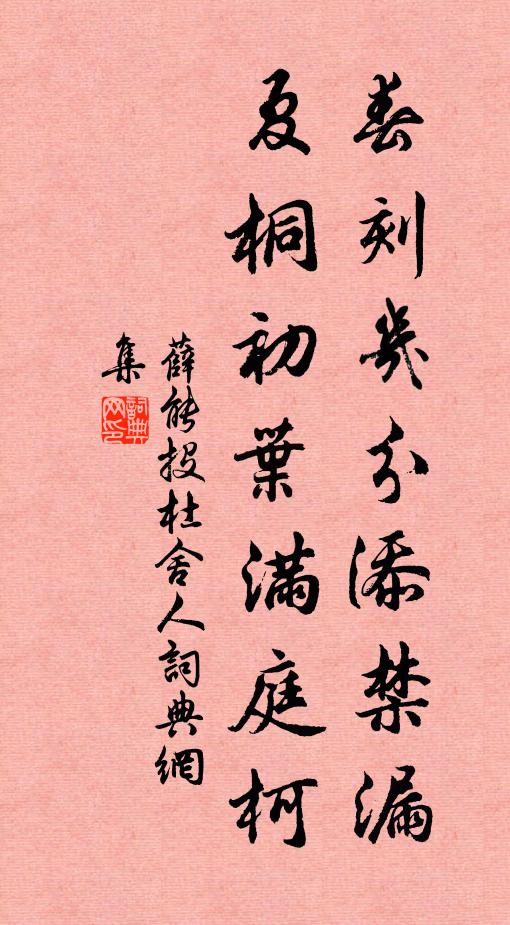 春刻幾分添禁漏
夏桐初葉滿庭柯
薛能投杜舍人詞典網
集
詞典網印